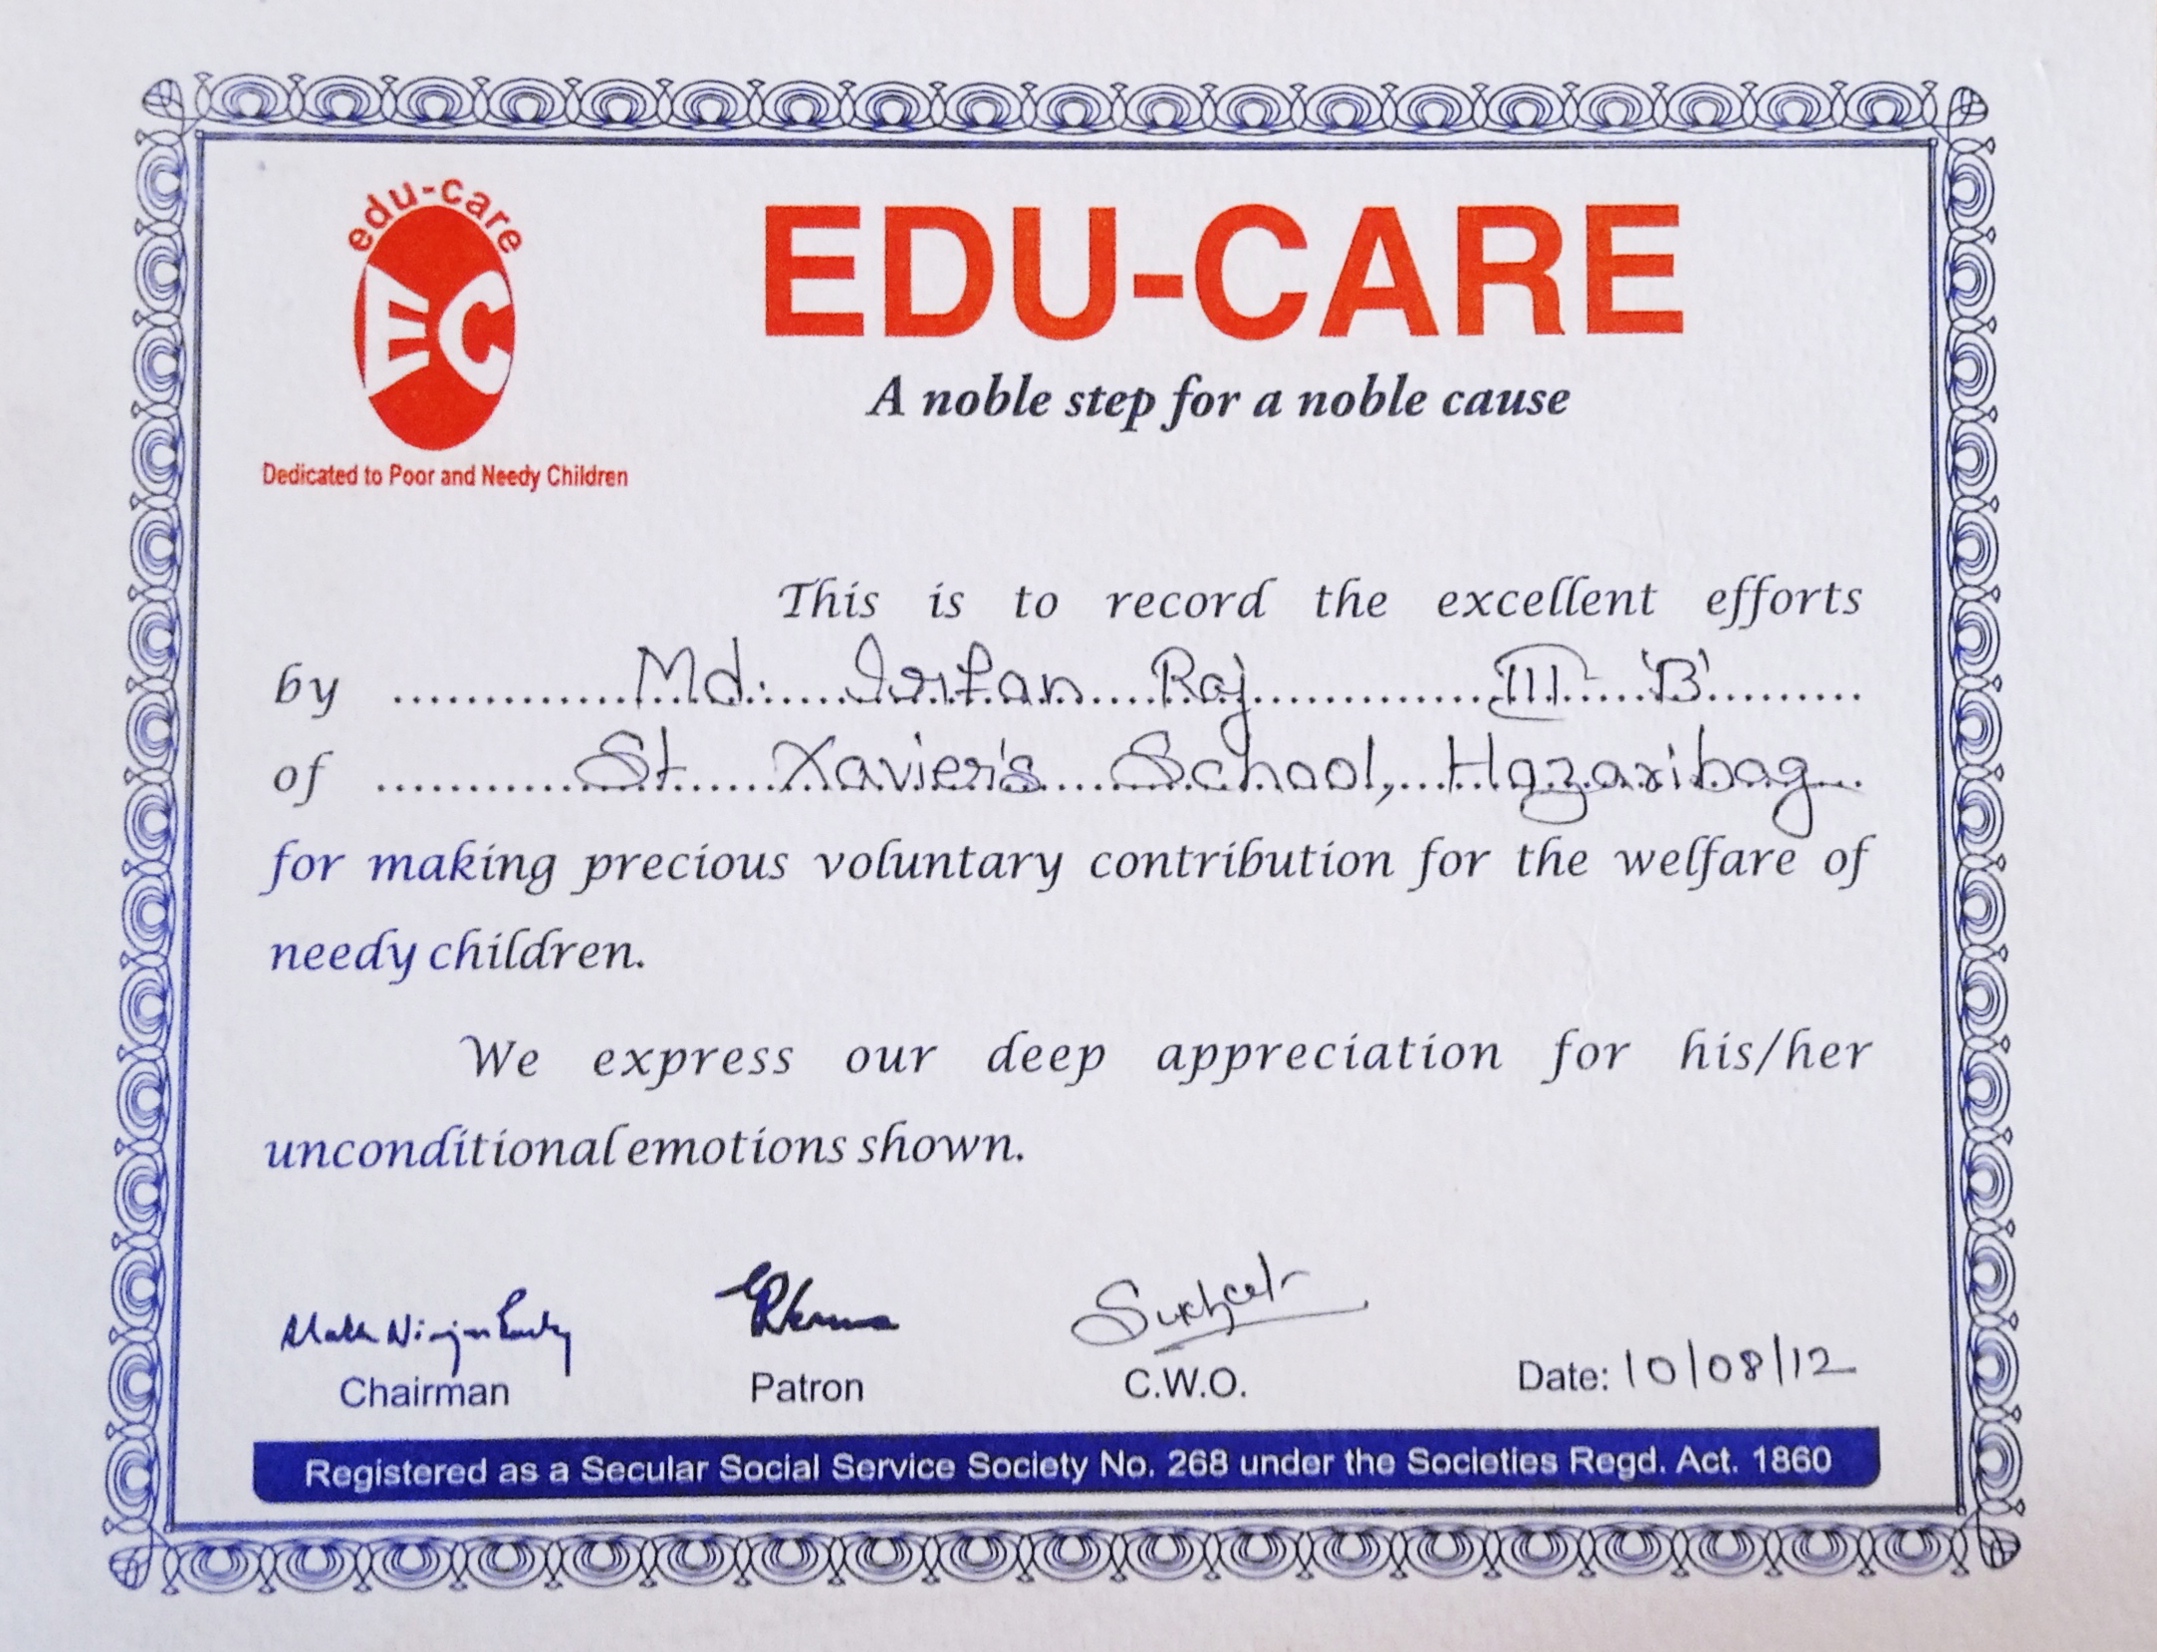 edu-care
EC
Dedicated to Poor and Needy Children
EDU-CARE
A noble step for a noble cause
This is to record the excellent efforts
by .............Md......Irfan....Raj...............III......'B'.........
of ............St.......Xavier's....School,...Hazaribag...
for making precious voluntary contribution for the welfare of
needy children.
We express our deep appreciation for his/her
unconditional emotions shown.
Chairman
Patron
C.W.O.
Date: 10/08/12
Registered as a Secular Social Service Society No. 268 under the Societies Regd. Act. 1860